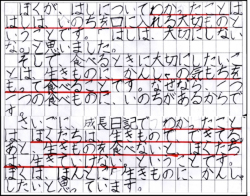 ぼくが、はしについてわかったことは
はしは、いのちを口に入れる大切なもの
ということです。はしは、大切にしないと
な。と思いました。
そして、食べるときに大切にしたいこ
とは、生きものに、かんしゃの気もちを
もって食べることです。なぜなら、一つ
一つの食べものに、いのちがあるからで
す。
さいごに、成長日記で、わかったこと
は、ぼくたちは、生きもので、できてる
あと、生きものを食べないと、ぼくたち
は、生きていけないということです。
ぼくは、ほんとに、生きものに、かんし
ゃしたいと思っています。